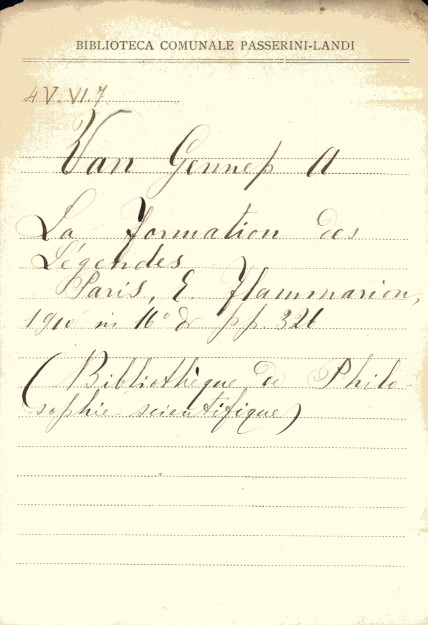 BIBLIOTECA COMUNALE PASSERINI-LANDI
4 V. VI. 7
Van Gennep A
La formation des
Légendes
Paris, E. Flammarion,
1910 in 16° pp. 326
(Bibliothèque de Philo-
sophie scientifique)